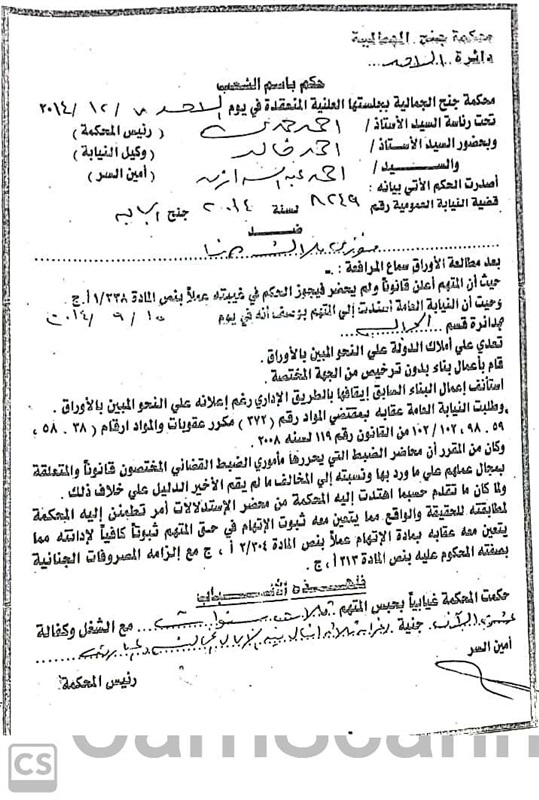 محكمة جنح الجمالية
دائرة الاحد
حكم باسم الشعب
محكمة جنح الجمالية بجلستها العلنية المنعقدة في يوم الاحد ٧ / ١٢ / ٢٠١٤
تحت رئاسة السيد الأستاذ / احمد حمدى ( رئيس المحكمة )
وبحضور السيد الأستاذ / احمد خالد ( وكيل النيابة )
والسيد / احمد ( أمين السر )
أصدرت الحكم الأتي بيانه :
قضية النيابة العمومية رقم ٨٢٤٩ لسنة ٢٠١٤ جنح
ضد
بعد مطالعة الأوراق سماع المرافعة :
حيث أن المتهم أعلن قانوناً ولم يحضر فيجوز الحكم في غيبته عملاً بنص المادة ١/٢٣٨ أ.ج
وحيث أن النيابة العامة أسندت إلي المتهم بوصف أنه في يوم ١٥ / ٩ / ٢٠١٤
بدائرة قسم
تعدي علي أملاك الدولة علي النحو المبين بالأوراق .
قام بأعمال بناء بدون ترخيص من الجهة المختصة .
استأنف إعمال البناء السابق إيقافها بالطريق الإداري رغم إعلانه علي النحو المبين بالأوراق .
وطلبت النيابة العامة عقابه بمقتضي المواد رقم ( ٣٧٢ ) مكرر عقوبات والمواد ارقام ( ٣٨ . ٥٨ ،
٥٩ . ٩٨ . ١٠٢ / ١٠٢ من القانون رقم ١١٩ لسنه ٢٠٠٨
وكان من المقرر أن محاضر الضبط التي يحررها مأموري الضبط القضائي المختصون قانوناً والمتعلقة
بمجال عملهم علي ما ورد بها ونسبته إلي المخالف ما لم يقم الأخير الدليل علي خلاف ذلك .
ولما كان ما تقدم حسبما اهتدت إليه المحكمة من محضر الإستدلالات أمر تطمئن إليه المحكمة
لمطابقته للحقيقة والواقع مما يتعين معه ثبوت الإتهام في حق المتهم ثبوتاً كافياً لإدانته مما
يتعين معه عقابه بمادة الإتهام عملاً بنص المادة ٢/٣٠٤ أ ، ج مع إلزامه المصروفات الجنائية
بصفته المحكوم عليه بنص المادة ٣١٣ أ ، ج .
فلهذه الأسباب
حكمت المحكمة غيابياً بحبس المتهم ثلاث سنوات مع الشغل وكفالة
جنية
أمين السر
رئيس المحكمة
CS
CamScann